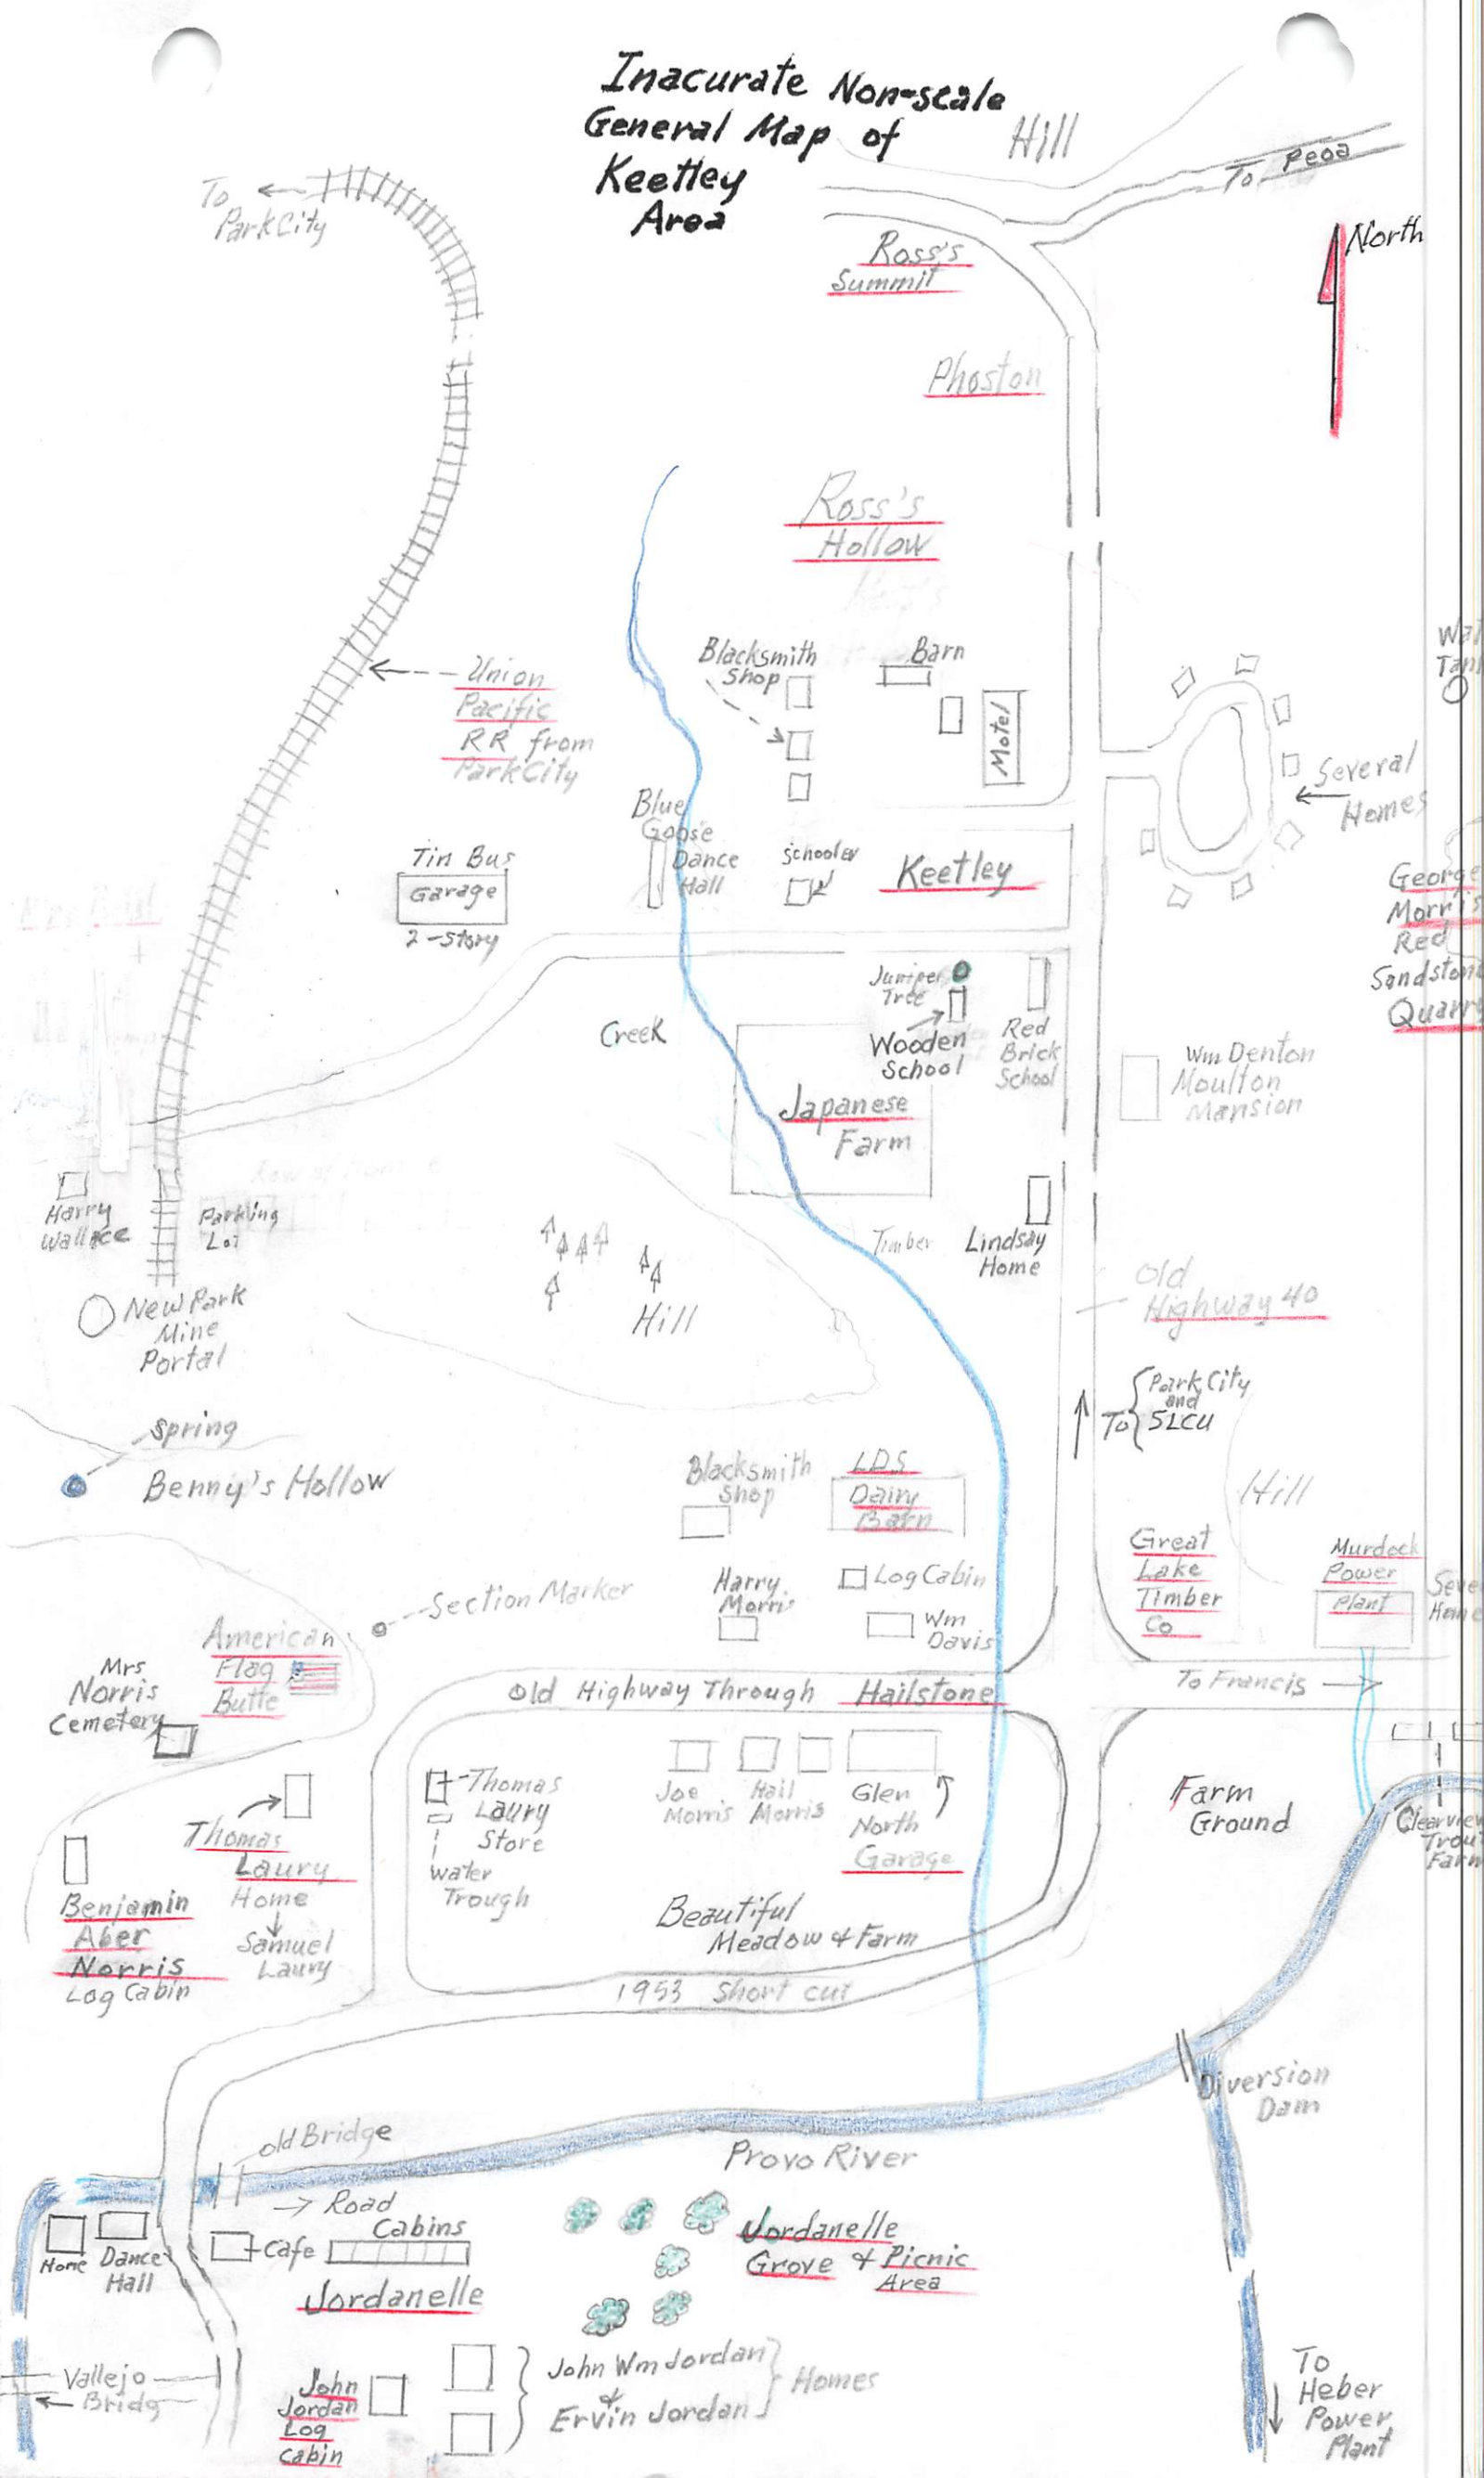 Inacurate Non-scale
General Map of
Keetley
Area
Hill
To Peoa
To
Park City
North
Ross's
Summit
Phoston
Ross's
Hollow
Blacksmith
Shop
Barn
Motel
Union
Pacific
RR from
Park City
Several
Homes
Blue
Goose
Dance
Hall
Schooler
Keetley
Tin Bus
Garage
2-Story
George
Morris
Red
Quarry
Juniper
Tree
Wooden
School
Red
Brick
School
Creek
Wm Denton
Moulton
Mansion
Japanese
Farm
Harry
Wallace
Parking
Lot
Timber
Lindsay
Home
Old
Highway 40
New Park
Mine
Portal
Hill
To
Park City
and
SLCU
Spring
Benny's Hollow
Blacksmith
Shop
LDS
Dairy
Barn
Hill
Great
Lake
Timber
Co
Murdock
Power
Plant
Harry
Morris
Log Cabin
Wm
Davis
Section Marker
American
Flag
Butte
Mrs
Norris
Cemetery
Old Highway Through Hailstone
To Francis
Thomas
Laury
Store
Water
Trough
Joe
Morris
Hail
Morris
Glen
North
Garage
Farm
Ground
Thomas
Laury
Home
Samuel
Laury
Benjamin
Aber
Norris
Log Cabin
Beautiful
Meadow & Farm
1953 Short cut
Diversion
Dam
old Bridge
Provo River
Road
Cabins
Cafe
Home
Dance
Hall
Jordanelle
Jordanelle
Grove & Picnic
Area
Vallejo
Bridg
John
Jordan
Log
Cabin
John Wm Jordan
&
Ervin Jordan
Homes
To
Heber
Power
Plant